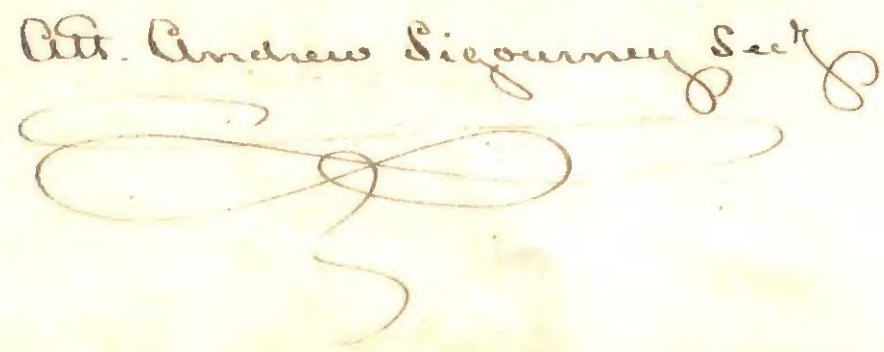 Att. Andrew Sigourney Secy